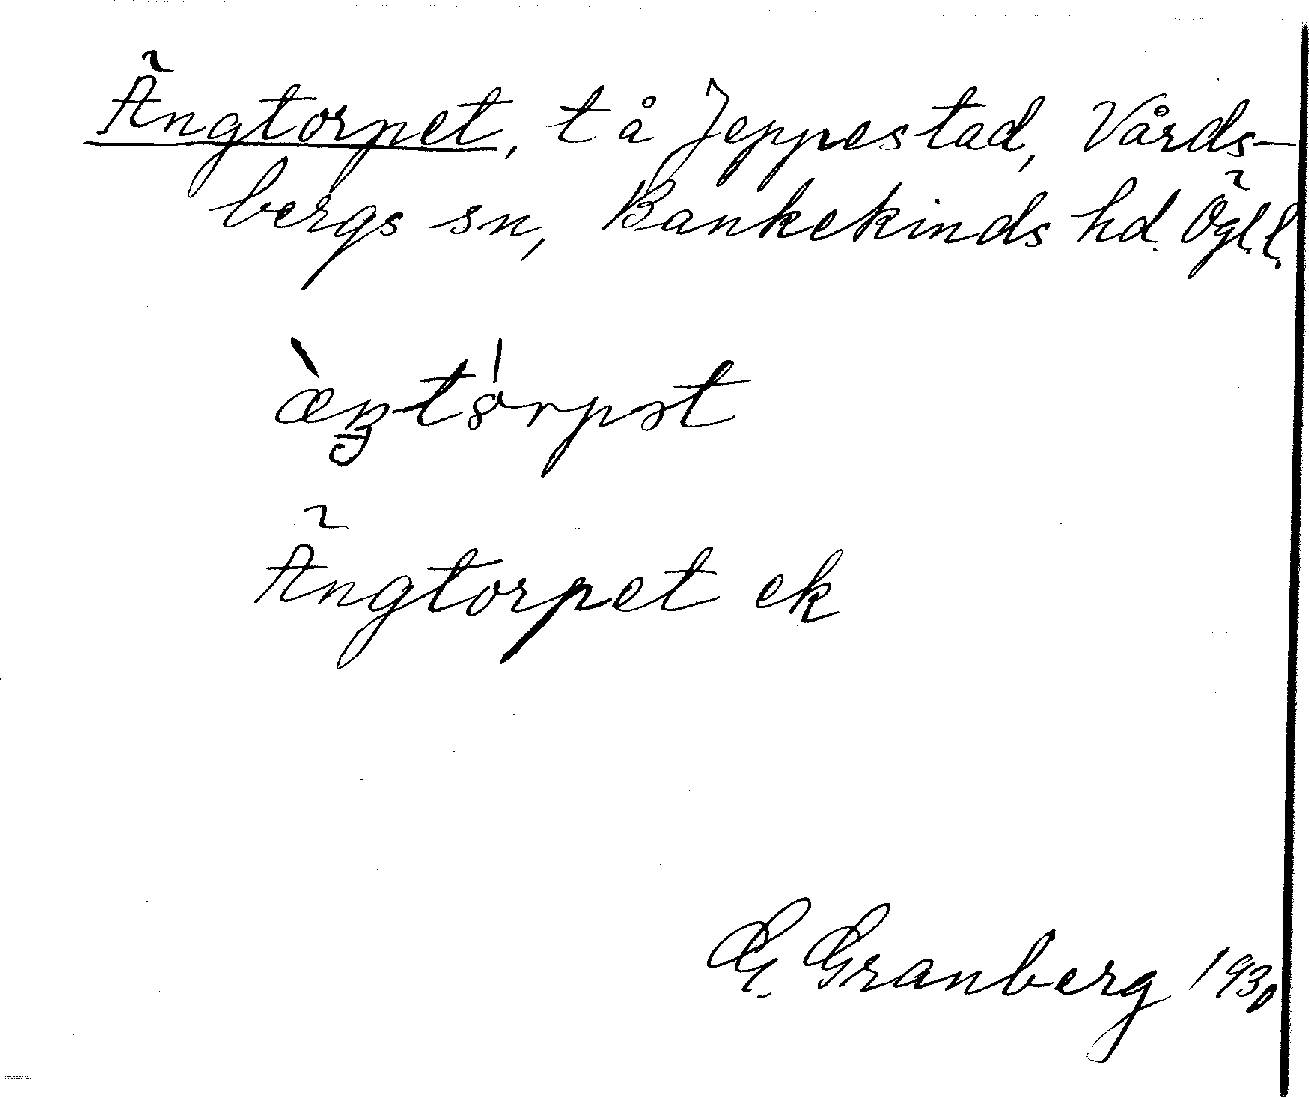 Ängtorpet, t å Jeppestad, Vårds-
bergs sn, Bankekinds hd. Ögl. l.
Ängtorpet ek
G. Granberg 1930